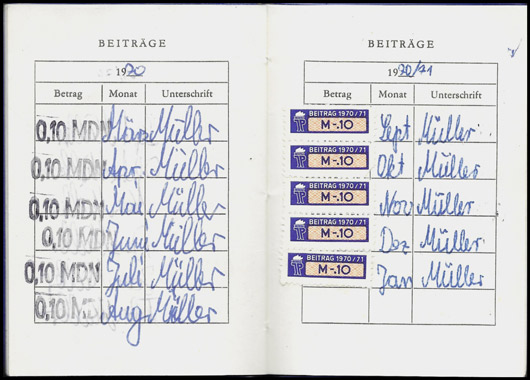 BEITRÄGE
1970
Betrag Monat Unterschrift
0,10 MDN März Müller
0,10 MDN Apr. Müller
0,10 MDN Mai Müller
0,10 MDN Juni Müller
0,10 MDN Juli Müller
0,10 MD Aug. Müller
BEITRÄGE
1970/71
Betrag Monat Unterschrift
BEITRAG 1970/71
M -.10 Sept Müller
BEITRAG 1970/71
M -.10 Okt Müller
BEITRAG 1970/71
M -.10 Nov Müller
BEITRAG 1970/71
M -.10 Dez Müller
BEITRAG 1970/71
M -.10 Jan Müller